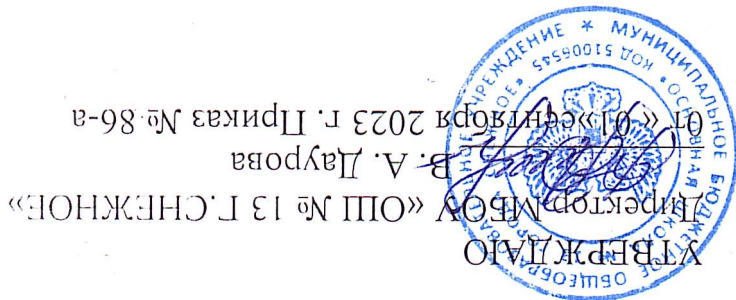 УТВЕРЖДАЮ
Директор МБОУ «ОШ № 13 Г.СНЕЖНОЕ»
В. А. Даурова
от « 01»сентября 2023 г. Приказ № 86-а
МУНИЦИПАЛЬНОЕ БЮДЖЕТНОЕ ОБЩЕОБРАЗОВА
НОЕ УЧРЕЖДЕНИЕ *
ОСНОВНАЯ
КОД 51006545